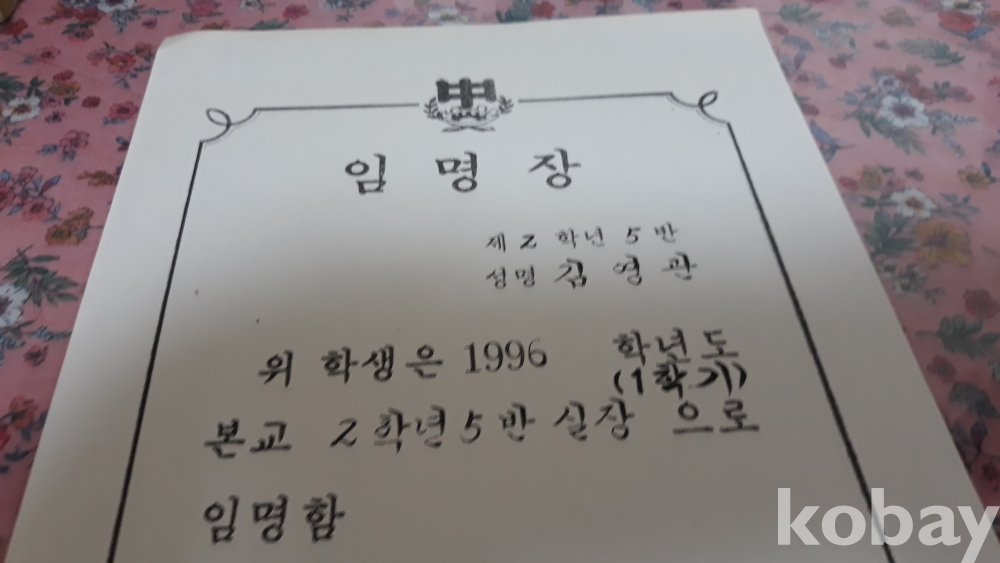 中
임명장
제 2 학년 5 반
성명 김영관
위 학생은 1996 학년도
(1학기)
본교 2학년 5반 실장 으로
임명함
kobay